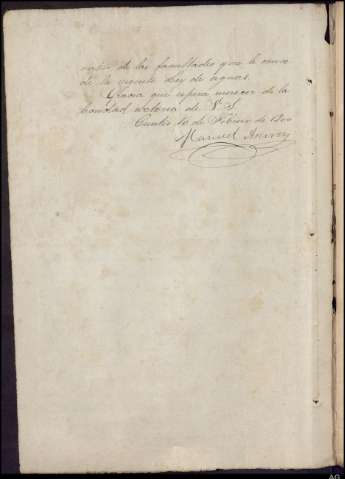 de las facultades que le
de la vigente Ley de aguas.
Gracia que espera merecer de la
bondad notoria de V. S.
10 de Febrero de
Manuel
AG